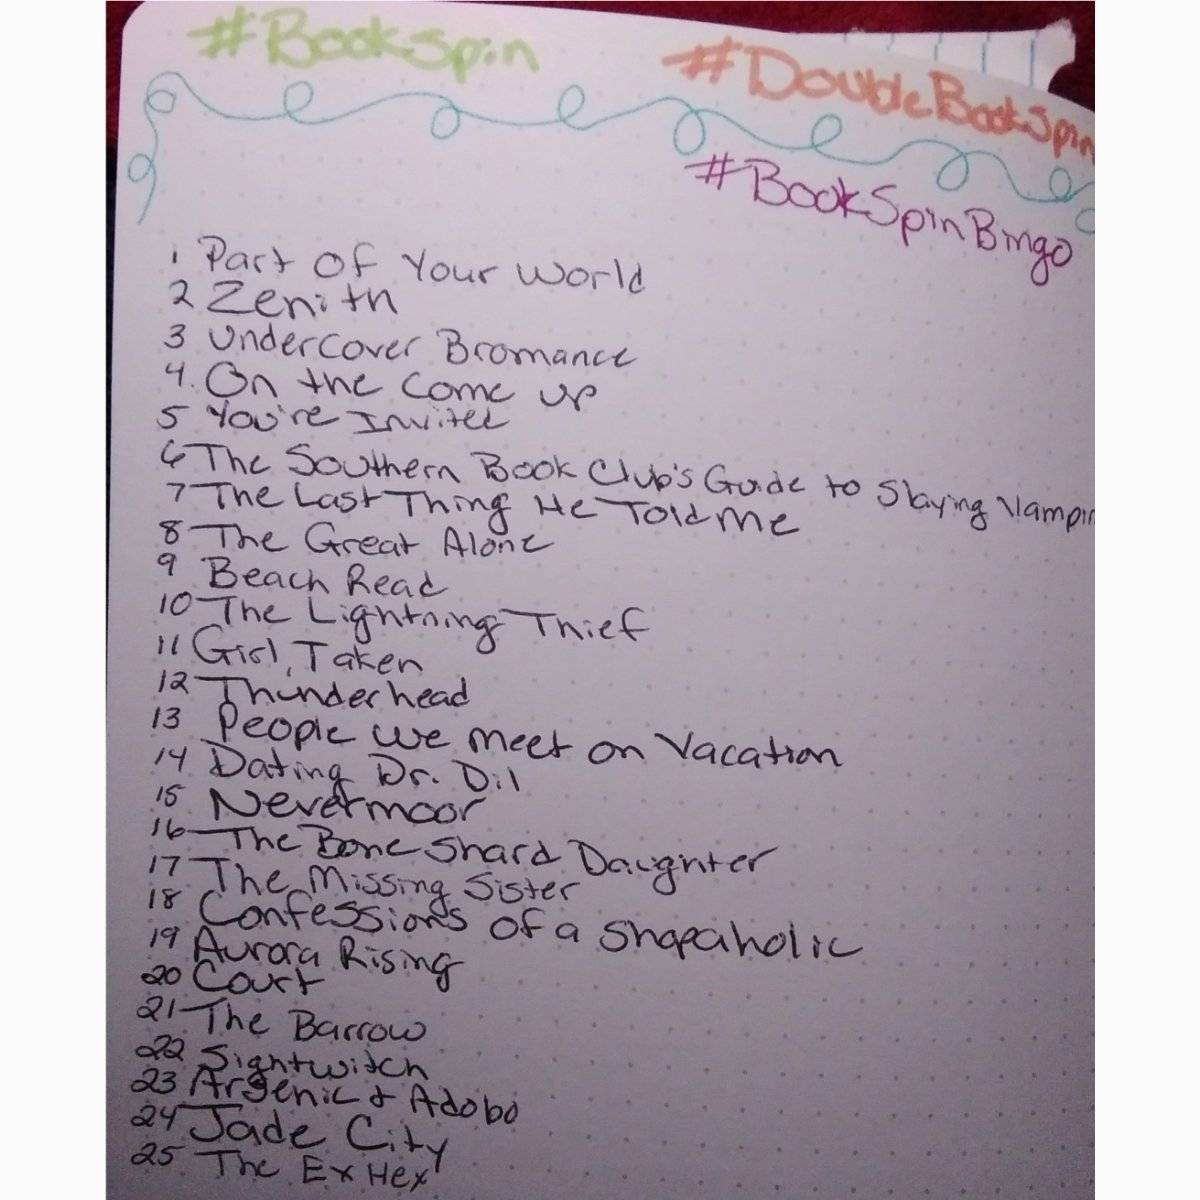 #BookSpin
#DoubleBookSpin
#BookSpinBingo
1 Part Of Your World
2 Zenith
3 Undercover Bromance
4. On the Come Up
5 You're Invited
6 The Southern Book Club's Guide to Slaying Vampir
7 The Last Thing He Told Me
8 The Great Alone
9 Beach Read
10 The Lightning Thief
11 Girl, Taken
12 Thunderhead
13 People We Meet on Vacation
14 Dating Dr. Dil
15 Nevermoor
16 The Bone Shard Daughter
17 The Missing Sister
18 Confessions of a Shopaholic
19 Aurora Rising
20 Court
21 The Barrow
22 Sightwitch
23 Arsenic & Adobo
24 Jade City
25 The Ex Hex